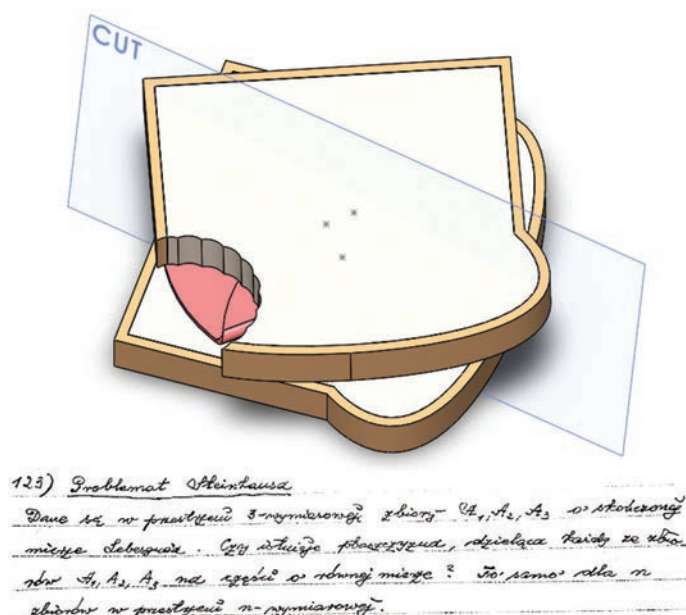 CUT
123) Problemat Steinhausa
Dane są w przestrzeni 3-wymiarowej zbiory A1, A2, A3 o skończonej
mierze Lebesgue'a. Czy istnieje płaszczyzna, dzieląca każdy ze zbio-
rów A1, A2, A3 na części o równej mierze? To samo dla n
zbiorów w przestrzeni n-wymiarowej.